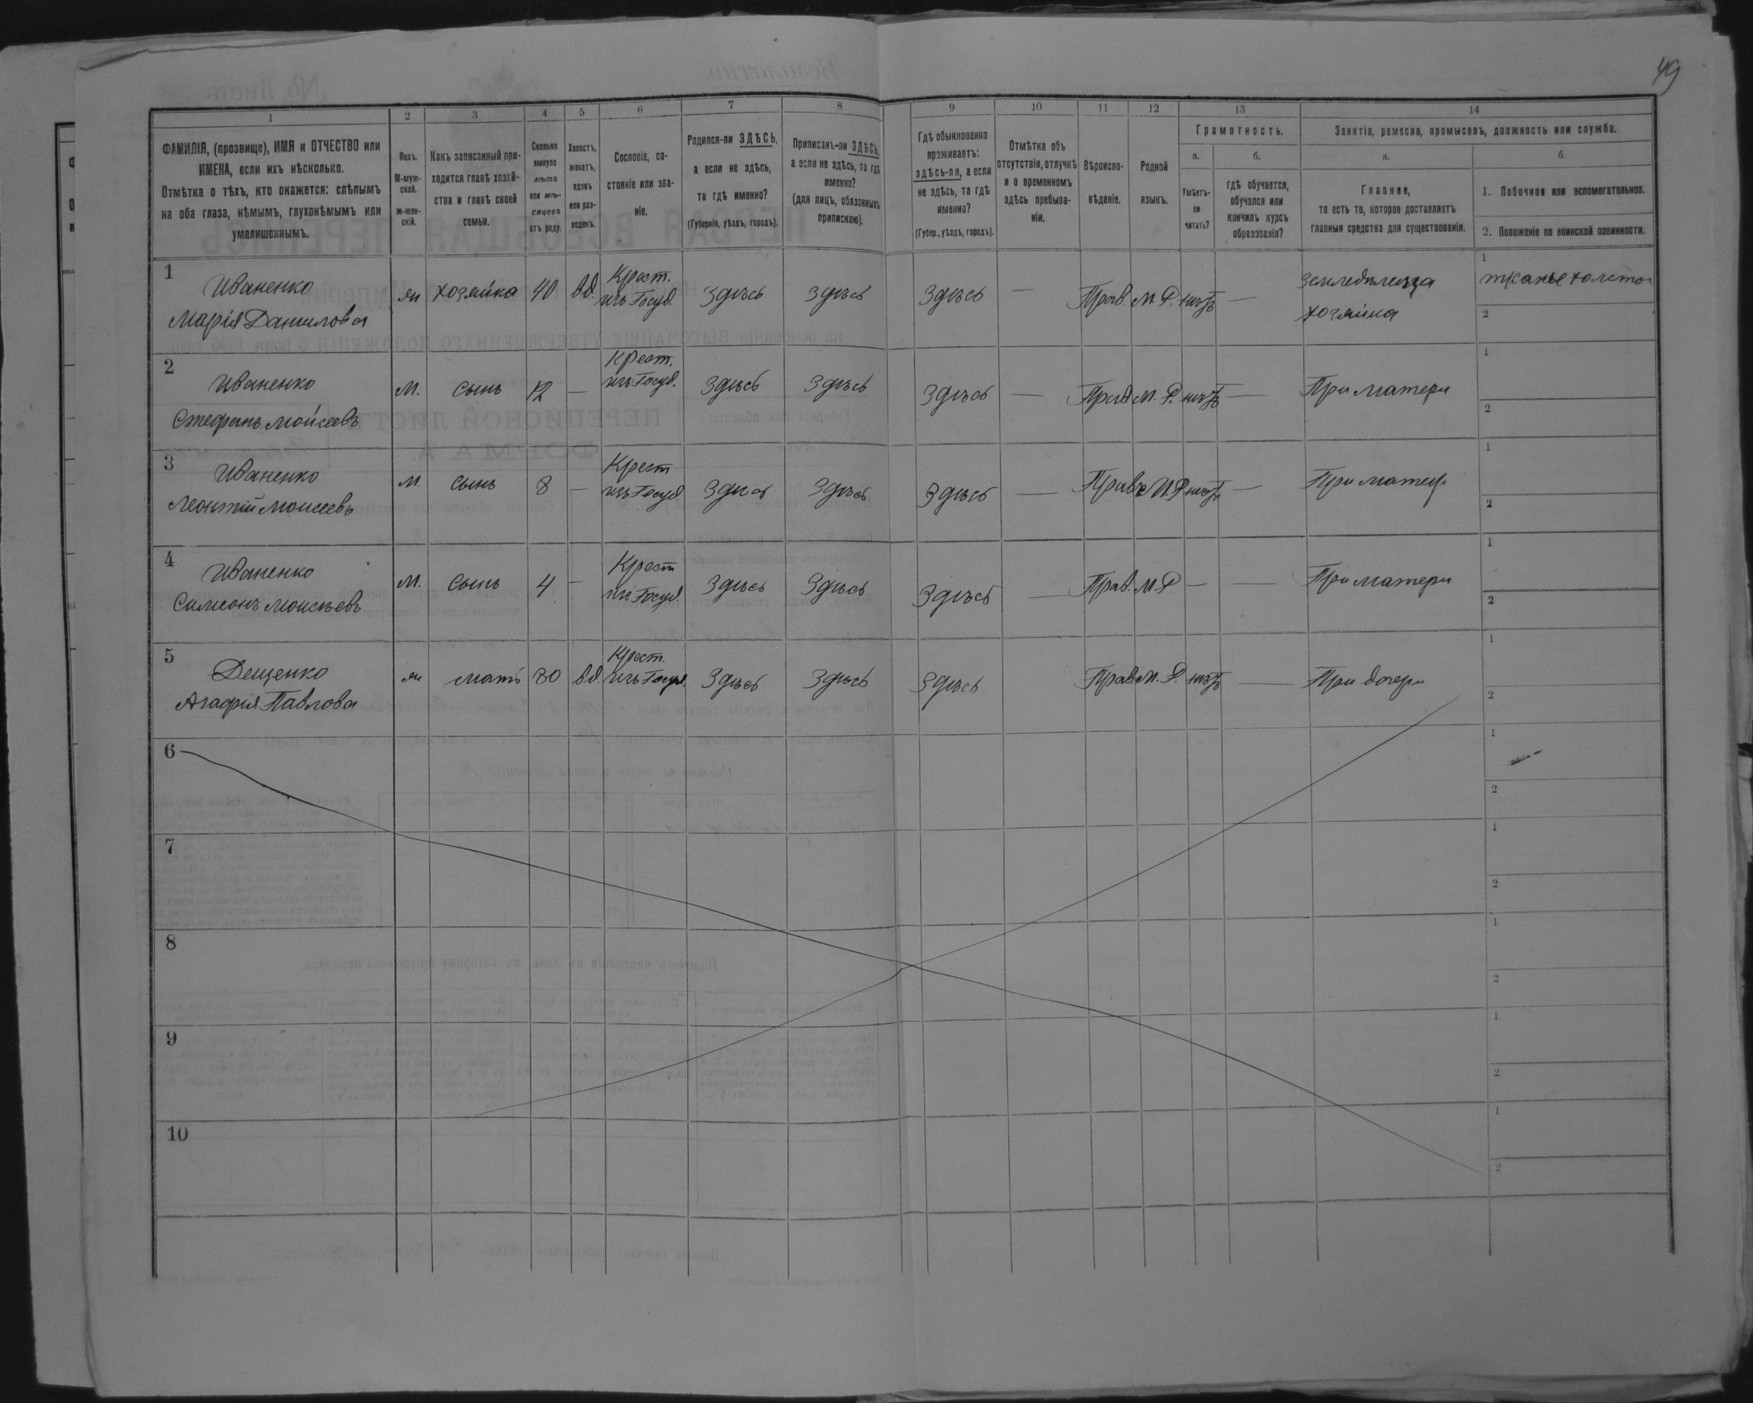 49
1 2 3 4 5 6 7 8 9 10 11 12 13 14
ФАМИЛІЯ, (прозвище), ИМЯ и ОТЧЕСТВО или
ИМЕНА, если ихъ нѣсколько.
Отмѣтка о тѣхъ, кто окажется: слѣпымъ
на оба глаза, нѣмымъ, глухонѣмымъ или
умалишеннымъ.
Полъ.
М-муж-
ской.
ж-жен-
скій.
Какъ записанный при-
ходится главѣ хозяй-
ства и главѣ своей
семьи.
Сколько
минуло
лѣтъ
или мѣ-
сяцевъ
отъ роду.
Холостъ,
женатъ,
вдовъ
или раз-
веденъ.
Сословіе, со-
стояніе или зва-
ніе.
Родился-ли ЗДѢСЬ,
а если не здѣсь,
то гдѣ именно?
(Губернія, уѣздъ, городъ).
Приписанъ-ли ЗДѢСЬ,
а если не здѣсь, то гдѣ
именно?
(для лицъ, обязанныхъ
припискою).
Гдѣ обыкновенно
проживаетъ:
здѣсь-ли, а если
не здѣсь, то гдѣ
именно?
(Губер., уѣздъ, городъ).
Отмѣтка объ
отсутствіи, отлучкѣ
и о временномъ
здѣсь пребыва-
ніи.
Вѣроиспо-
вѣданіе.
Родной
языкъ.
Грамотность.
а. б.
Умѣетъ-
ли
читать?
гдѣ обучается,
обучался или
кончилъ курсъ
образованія?
Занятіе, ремесло, промыселъ, должность или служба.
а. б.
Главное,
то есть то, которое доставляетъ
главныя средства для существованія.
1. Побочное или вспомогательное.
2. Положеніе по воинской повинности.
1 Иваненко
Марія Данилова
ж хозяйка 40 вд. Крест.
изъ Госуд. Здѣсь Здѣсь Здѣсь — Прав. М. Р. нѣтъ — Земледѣлица
хозяйка
1 тканье холстов
2
2 Иваненко
Стефанъ Моисеевъ
М. сынъ 12 — Крест.
изъ Госуд. Здѣсь Здѣсь Здѣсь — Прав М. Р. нѣтъ — При матери
1
2
3 Иваненко
Леонтій Моисеевъ
М. сынъ 8 — Крест
изъ Госуд Здѣсь Здѣсь Здѣсь — Прав М. Р нѣтъ — При матер
1
2
4 Иваненко
Самсонъ Моисѣевъ
М. сынъ 4 — Крест
изъ Госуд. Здѣсь Здѣсь Здѣсь — Прав. М. Р — — При матери
1
2
5 Дещенко
Агафія Павлова
ж мать 80 вд. Крест.
изъ Госуд Здѣсь Здѣсь Здѣсь Прав. М. Р. нѣтъ — При дочери
1
2
6
1
2
7
1
2
8
1
2
9
1
2
10
1
2